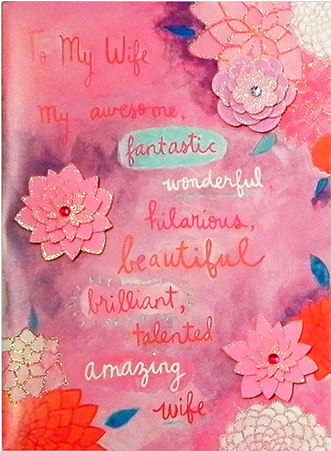 To My Wife
My awesome,
fantastic
wonderful,
hilarious,
beautiful
brilliant,
talented
amazing
wife